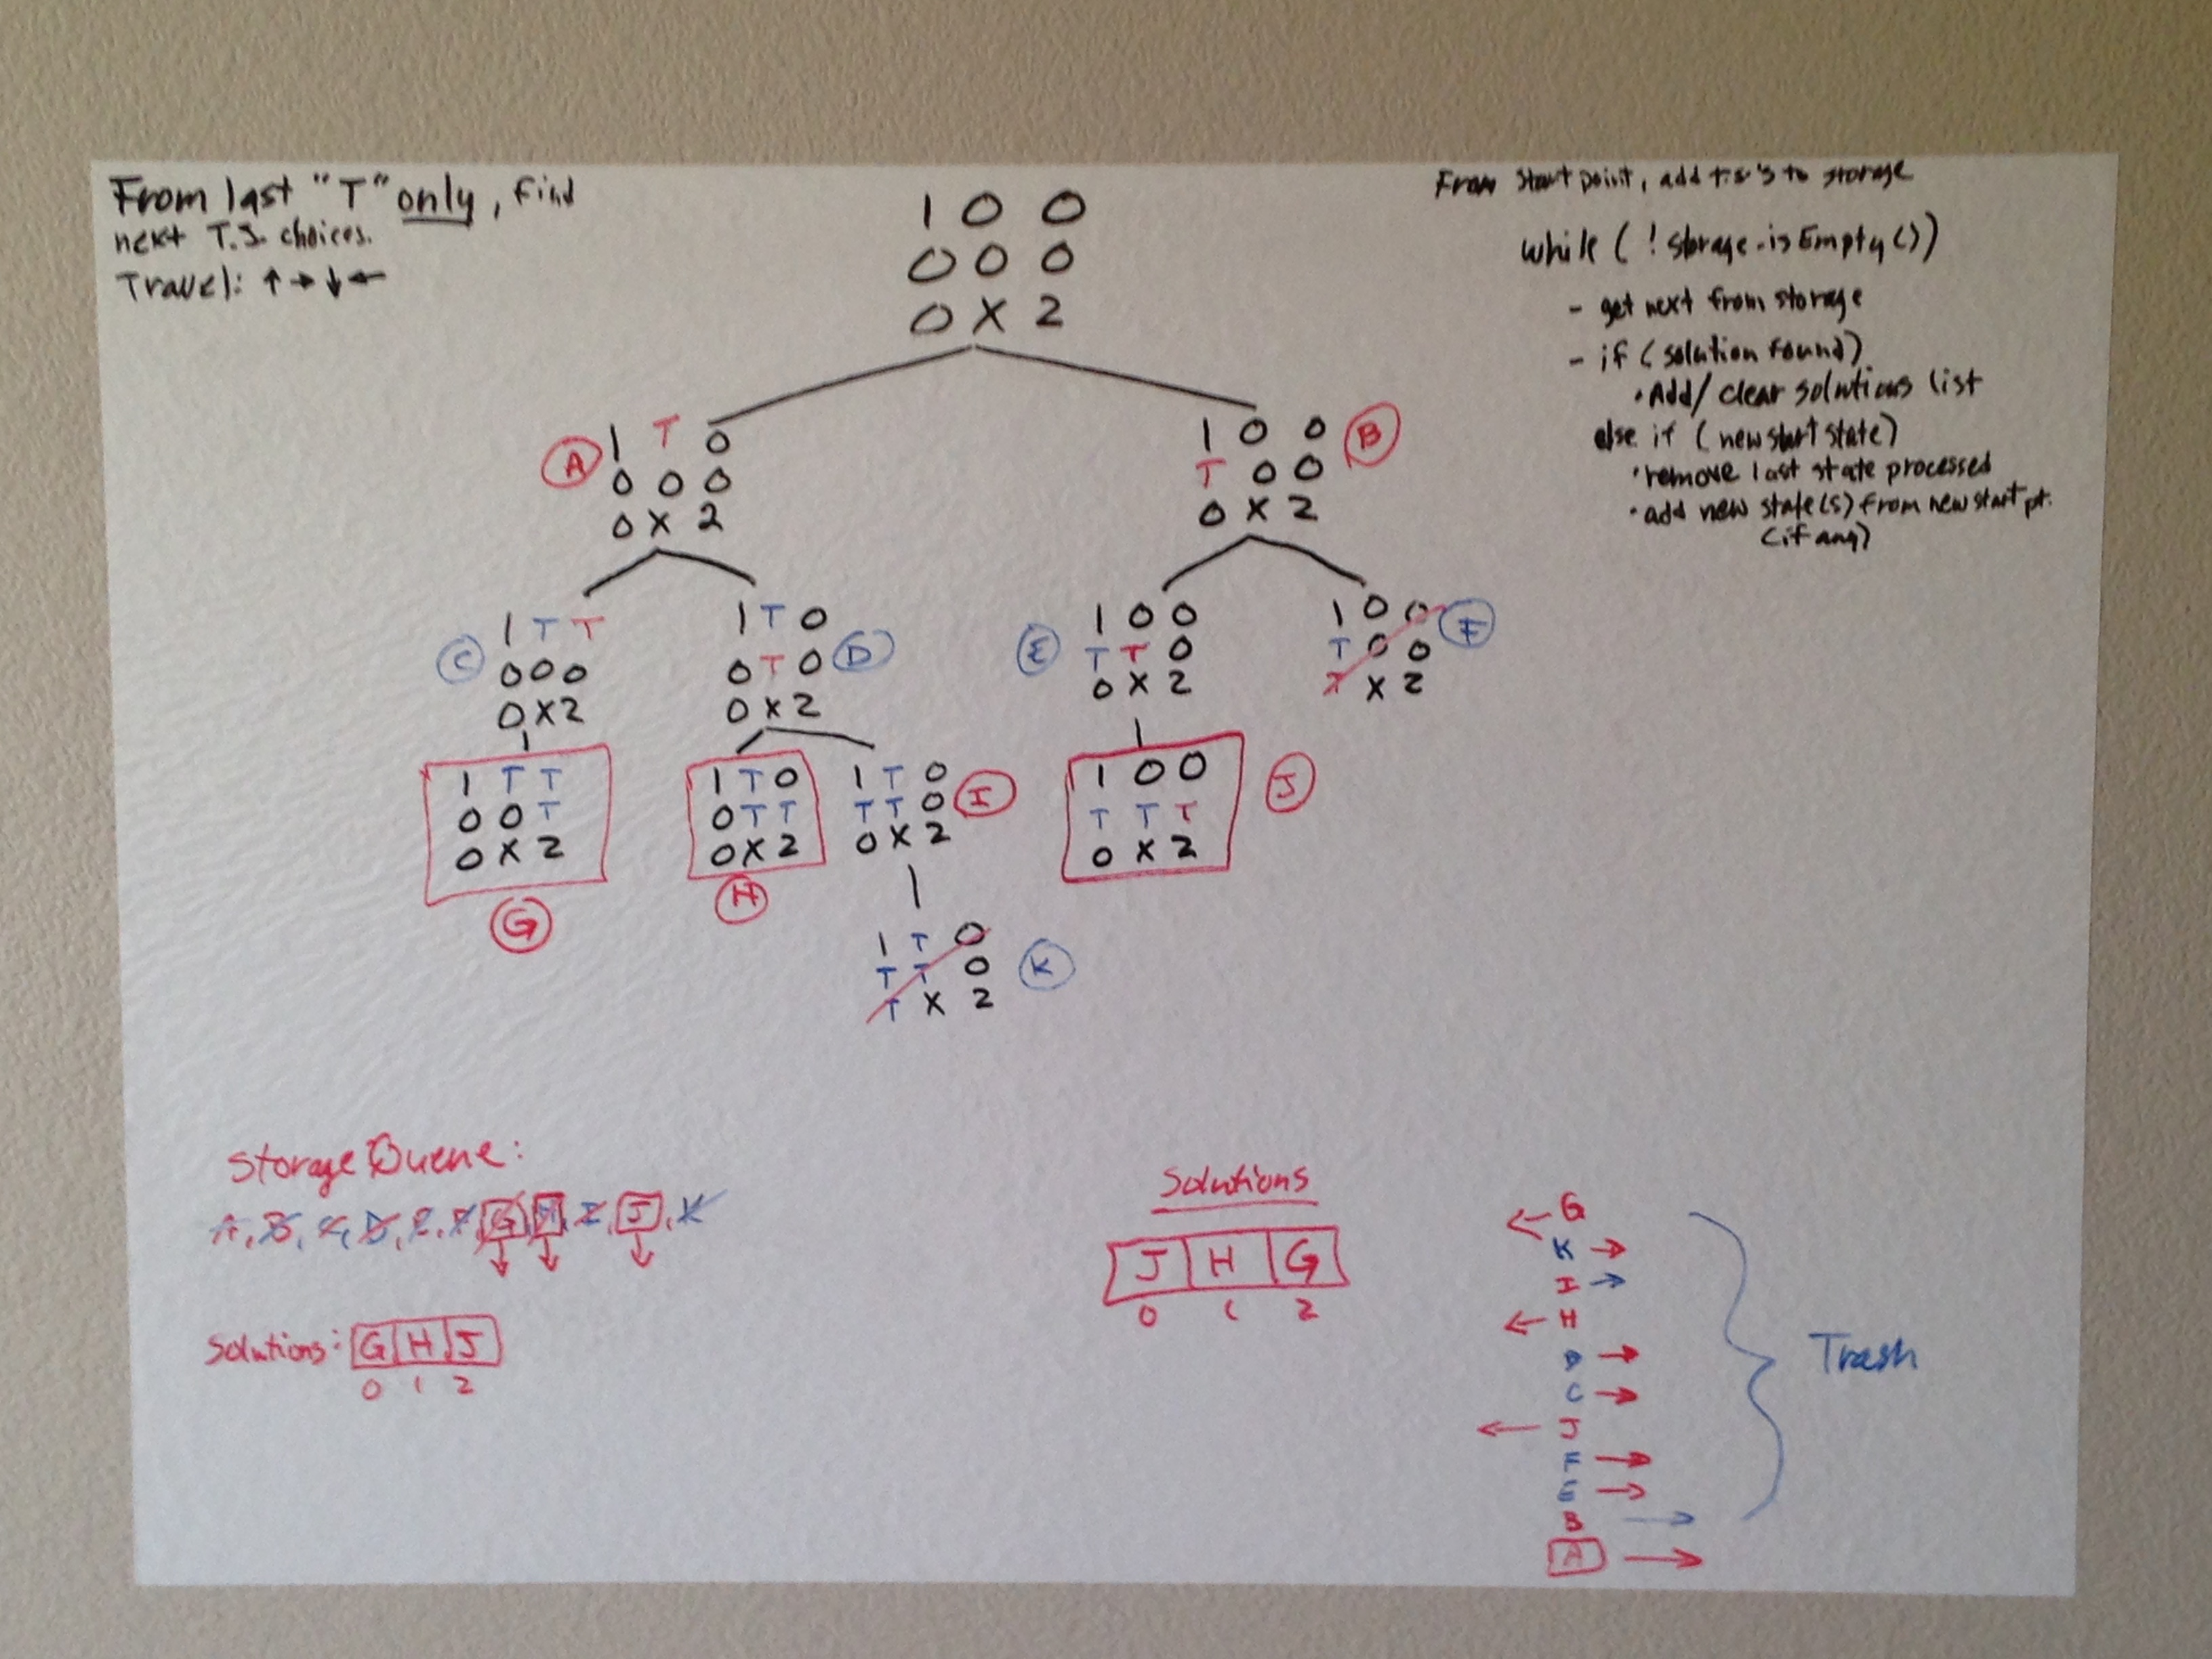 From last "T" only, find
next T.S. choices.
Travel: ↑→↓←
From start point, add t.s's to storage
while ( ! storage.isEmpty())
- get next from storage
- if (solution found)
• Add/ clear solutions list
else if (new start state)
• remove last state processed
• add new state(s) from new start pt.
(if any)
1 0 0
0 0 0
0 X 2
A
1 T 0
0 0 0
0 X 2
1 0 0
T 0 0
0 X 2
B
C
1 T T
0 0 0
0 X 2
1 T 0
0 T 0
0 X 2
D
E
1 0 0
T T 0
0 X 2
1 0 0
T 0 0
T X 2
F
1 T T
0 0 T
0 X 2
G
1 T 0
0 T T
0 X 2
H
1 T 0
T T 0
0 X 2
I
1 0 0
T T T
0 X 2
J
1 T 0
T T 0
T X 2
K
Storage Queue:
A, B, C, D, E, F, G, H, I, J, K
Solutions: G H J
0 1 2
Solutions
J H G
0 1 2
← G
K →
I →
← H
D →
C →
← J
F →
E →
B →
A →
Trash